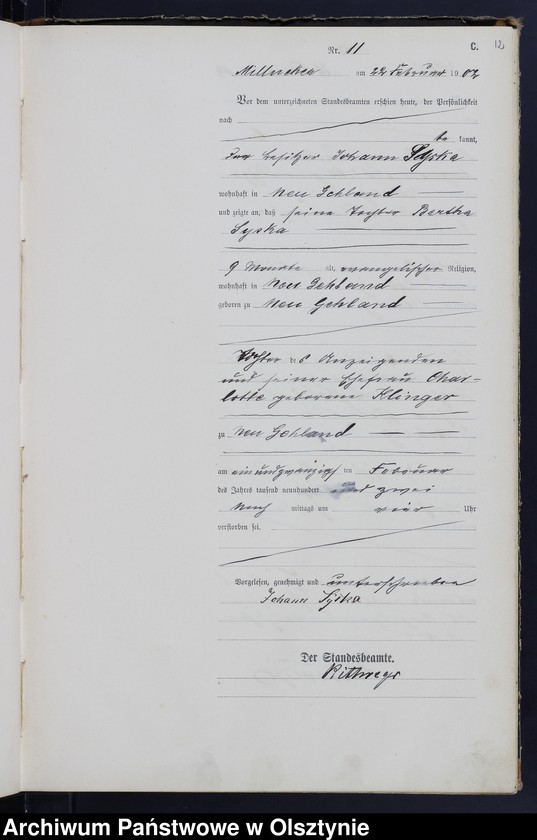 Nr. 11
C. 12
am 22 Februar 1902
Vor dem unterzeichneten Standesbeamten erschien heute, der Persönlichkeit
nach
be kannt,
der Besitzer Johann Syska
wohnhaft in Neu Gehland
und zeigte an, daß seine Tochter Bertha
Syska
9 Monate alt, evangelischer Religion,
wohnhaft in Neu Gehland
geboren zu Neu Gehland
Tochter des Anzeigenden
und seiner Ehefrau Char-
lotte geborene Klinger
zu Neu Gehland
am einundzwanzigsten Februar
des Jahres tausend neunhundert und zwei
Nach mittags um vier Uhr
verstorben sei.
Vorgelesen, genehmigt und unterschrieben
Johann Syska
Der Standesbeamte.
Archiwum Państwowe w Olsztynie